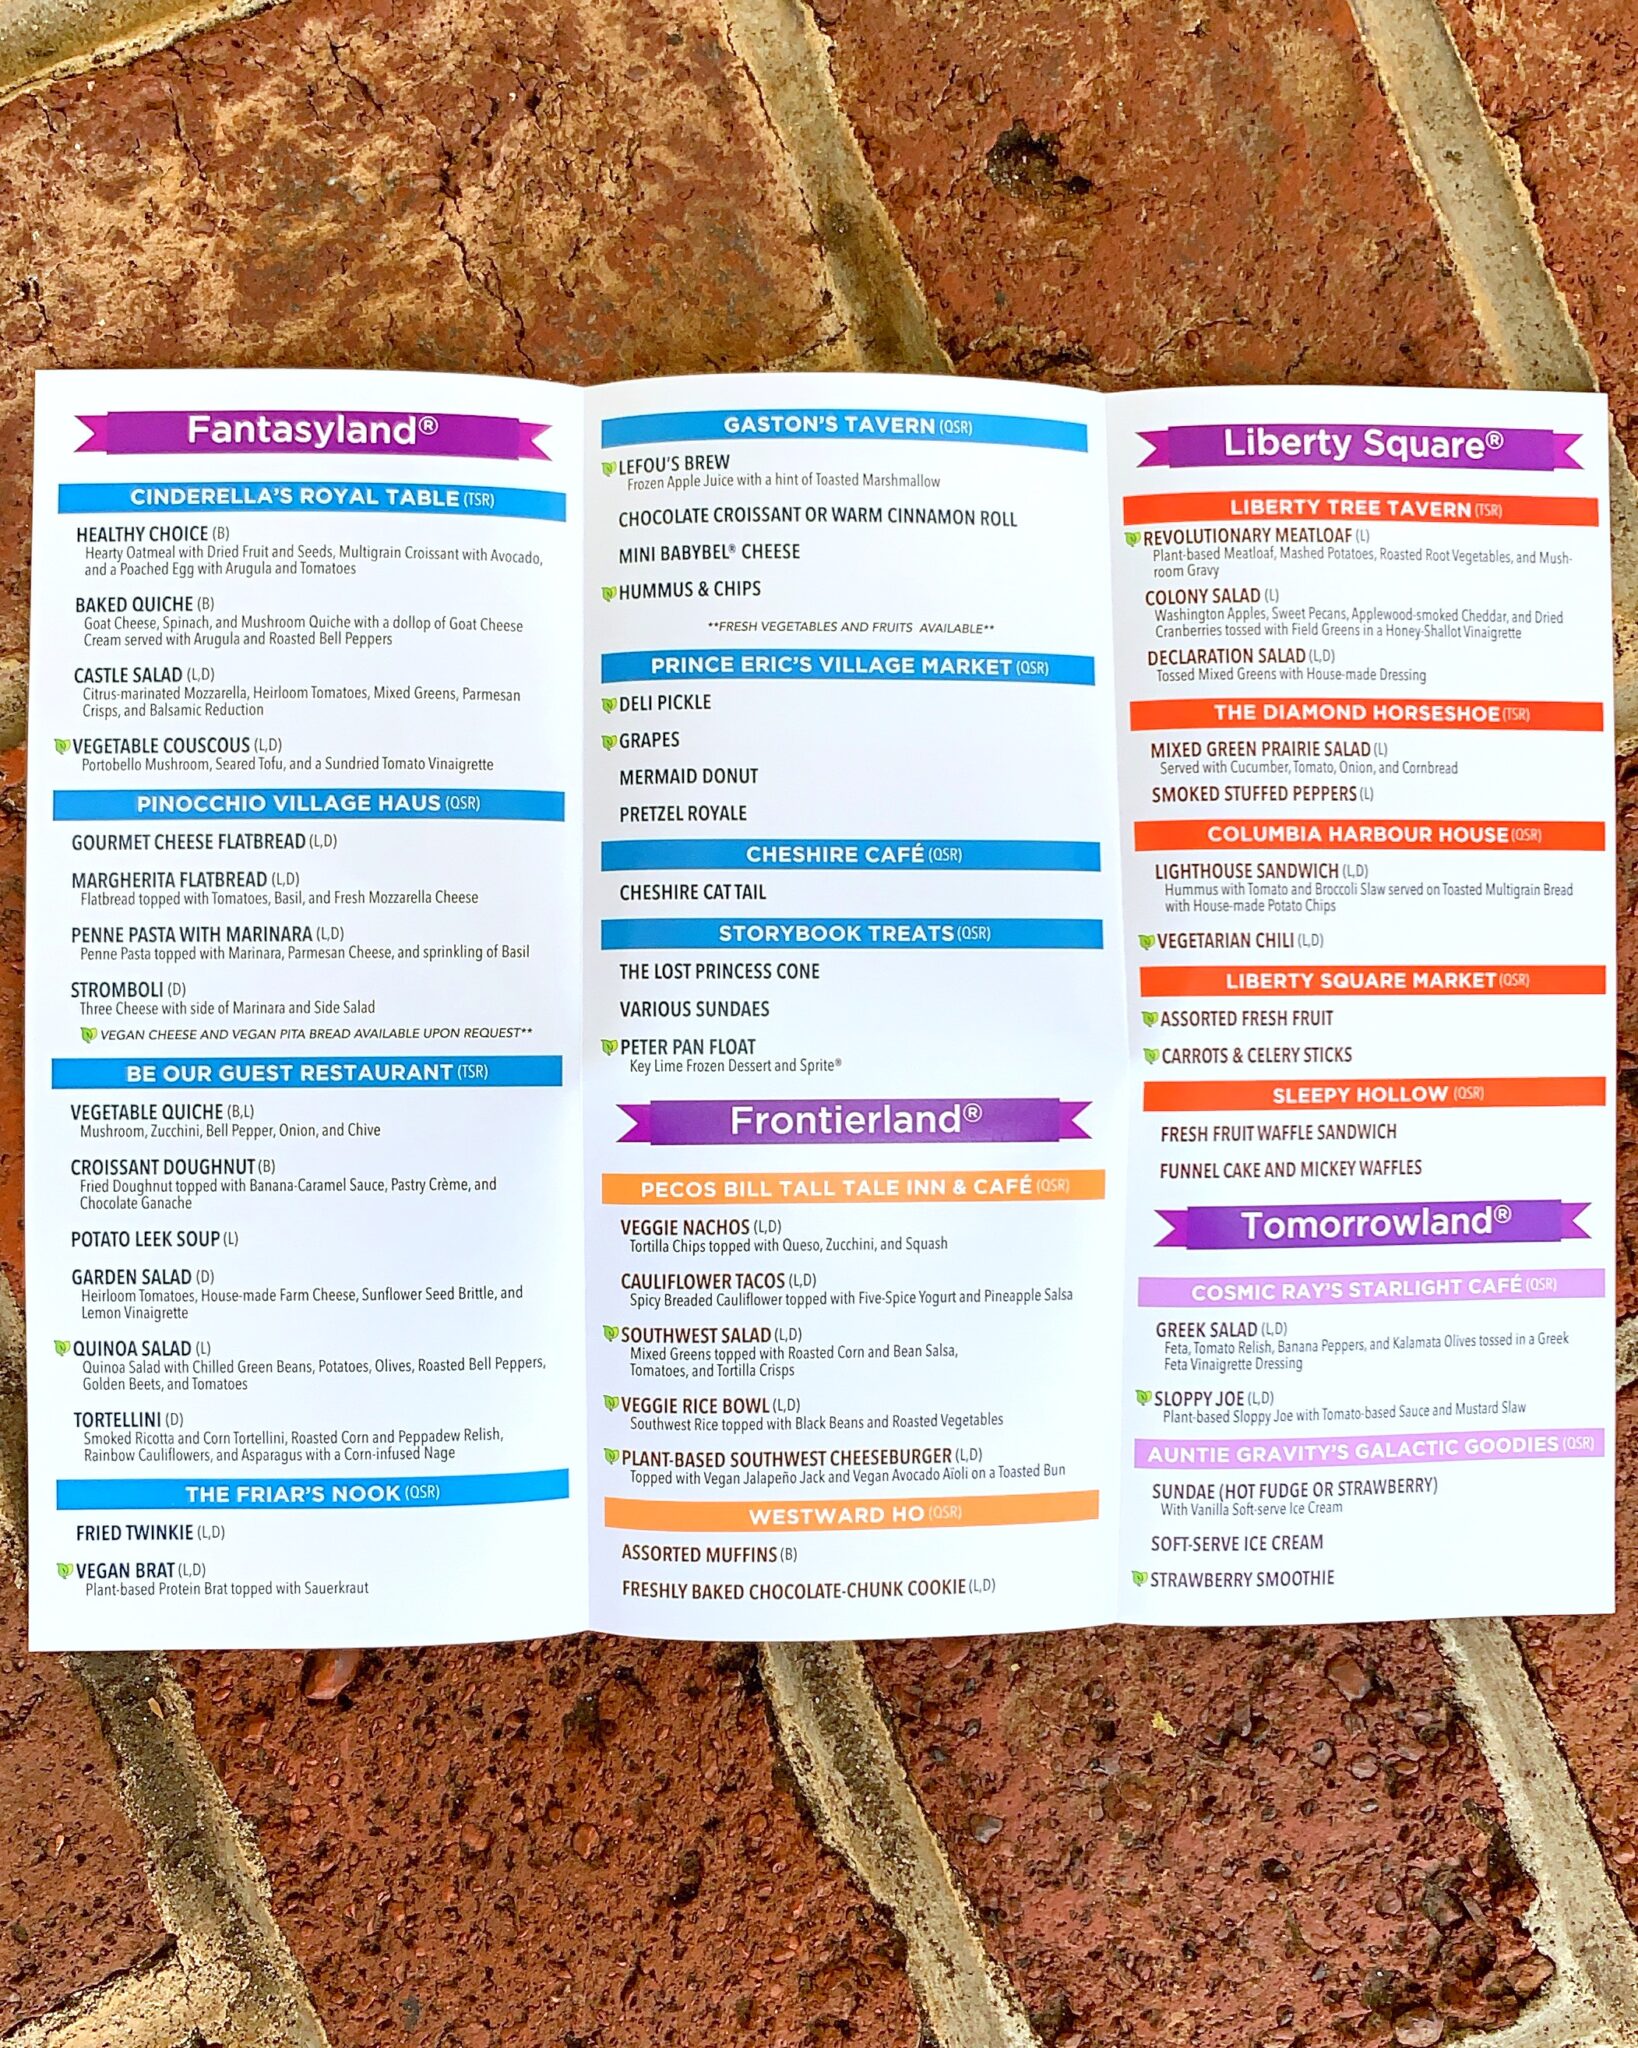 Fantasyland®
CINDERELLA'S ROYAL TABLE (TSR)
HEALTHY CHOICE (B)
Hearty Oatmeal with Dried Fruit and Seeds, Multigrain Croissant with Avocado,
and a Poached Egg with Arugula and Tomatoes
BAKED QUICHE (B)
Goat Cheese, Spinach, and Mushroom Quiche with a dollop of Goat Cheese
Cream served with Arugula and Roasted Bell Peppers
CASTLE SALAD (L,D)
Citrus-marinated Mozzarella, Heirloom Tomatoes, Mixed Greens, Parmesan
Crisps, and Balsamic Reduction
VEGETABLE COUSCOUS (L,D)
Portobello Mushroom, Seared Tofu, and a Sundried Tomato Vinaigrette
PINOCCHIO VILLAGE HAUS (QSR)
GOURMET CHEESE FLATBREAD (L,D)
MARGHERITA FLATBREAD (L,D)
Flatbread topped with Tomatoes, Basil, and Fresh Mozzarella Cheese
PENNE PASTA WITH MARINARA (L,D)
Penne Pasta topped with Marinara, Parmesan Cheese, and sprinkling of Basil
STROMBOLI (D)
Three Cheese with side of Marinara and Side Salad
VEGAN CHEESE AND VEGAN PITA BREAD AVAILABLE UPON REQUEST**
BE OUR GUEST RESTAURANT (TSR)
VEGETABLE QUICHE (B,L)
Mushroom, Zucchini, Bell Pepper, Onion, and Chive
CROISSANT DOUGHNUT (B)
Fried Doughnut topped with Banana-Caramel Sauce, Pastry Crème, and
Chocolate Ganache
POTATO LEEK SOUP (L)
GARDEN SALAD (D)
Heirloom Tomatoes, House-made Farm Cheese, Sunflower Seed Brittle, and
Lemon Vinaigrette
QUINOA SALAD (L)
Quinoa Salad with Chilled Green Beans, Potatoes, Olives, Roasted Bell Peppers,
Golden Beets, and Tomatoes
TORTELLINI (D)
Smoked Ricotta and Corn Tortellini, Roasted Corn and Peppadew Relish,
Rainbow Cauliflowers, and Asparagus with a Corn-infused Nage
THE FRIAR'S NOOK (QSR)
FRIED TWINKIE (L,D)
VEGAN BRAT (L,D)
Plant-based Protein Brat topped with Sauerkraut
GASTON'S TAVERN (QSR)
LEFOU'S BREW
Frozen Apple Juice with a hint of Toasted Marshmallow
CHOCOLATE CROISSANT OR WARM CINNAMON ROLL
MINI BABYBEL® CHEESE
HUMMUS & CHIPS
**FRESH VEGETABLES AND FRUITS AVAILABLE**
PRINCE ERIC'S VILLAGE MARKET (QSR)
DELI PICKLE
GRAPES
MERMAID DONUT
PRETZEL ROYALE
CHESHIRE CAFÉ (QSR)
CHESHIRE CAT TAIL
STORYBOOK TREATS (QSR)
THE LOST PRINCESS CONE
VARIOUS SUNDAES
PETER PAN FLOAT
Key Lime Frozen Dessert and Sprite®
Frontierland®
PECOS BILL TALL TALE INN & CAFÉ (QSR)
VEGGIE NACHOS (L,D)
Tortilla Chips topped with Queso, Zucchini, and Squash
CAULIFLOWER TACOS (L,D)
Spicy Breaded Cauliflower topped with Five-Spice Yogurt and Pineapple Salsa
SOUTHWEST SALAD (L,D)
Mixed Greens topped with Roasted Corn and Bean Salsa,
Tomatoes, and Tortilla Crisps
VEGGIE RICE BOWL (L,D)
Southwest Rice topped with Black Beans and Roasted Vegetables
PLANT-BASED SOUTHWEST CHEESEBURGER (L,D)
Topped with Vegan Jalapeño Jack and Vegan Avocado Aïoli on a Toasted Bun
WESTWARD HO (QSR)
ASSORTED MUFFINS (B)
FRESHLY BAKED CHOCOLATE-CHUNK COOKIE (L,D)
Liberty Square®
LIBERTY TREE TAVERN (TSR)
REVOLUTIONARY MEATLOAF (L)
Plant-based Meatloaf, Mashed Potatoes, Roasted Root Vegetables, and Mush-
room Gravy
COLONY SALAD (L)
Washington Apples, Sweet Pecans, Applewood-smoked Cheddar, and Dried
Cranberries tossed with Field Greens in a Honey-Shallot Vinaigrette
DECLARATION SALAD (L,D)
Tossed Mixed Greens with House-made Dressing
THE DIAMOND HORSESHOE (TSR)
MIXED GREEN PRAIRIE SALAD (L)
Served with Cucumber, Tomato, Onion, and Cornbread
SMOKED STUFFED PEPPERS (L)
COLUMBIA HARBOUR HOUSE (QSR)
LIGHTHOUSE SANDWICH (L,D)
Hummus with Tomato and Broccoli Slaw served on Toasted Multigrain Bread
with House-made Potato Chips
VEGETARIAN CHILI (L,D)
LIBERTY SQUARE MARKET (QSR)
ASSORTED FRESH FRUIT
CARROTS & CELERY STICKS
SLEEPY HOLLOW (QSR)
FRESH FRUIT WAFFLE SANDWICH
FUNNEL CAKE AND MICKEY WAFFLES
Tomorrowland®
COSMIC RAY'S STARLIGHT CAFÉ (QSR)
GREEK SALAD (L,D)
Feta, Tomato Relish, Banana Peppers, and Kalamata Olives tossed in a Greek
Feta Vinaigrette Dressing
SLOPPY JOE (L,D)
Plant-based Sloppy Joe with Tomato-based Sauce and Mustard Slaw
AUNTIE GRAVITY'S GALACTIC GOODIES (QSR)
SUNDAE (HOT FUDGE OR STRAWBERRY)
With Vanilla Soft-serve Ice Cream
SOFT-SERVE ICE CREAM
STRAWBERRY SMOOTHIE